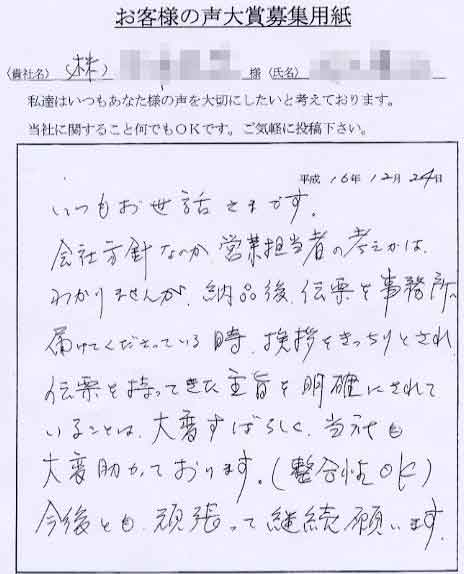 お客様の声大賞募集用紙
(貴社名) (株) 様 (氏名)
私達はいつもあなた様の声を大切にしたいと考えております。
当社に関すること何でもOKです。ご気軽に投稿下さい。
平成 16年 12月 24日
いつもお世話さまです。
会社方針なのか、営業担当者の考えかは、
わかりませんが、納品後、伝票を事務所へ
届けてくださっている時、挨拶をきっちりとされ
伝票を持ってきた主旨を明確にされて
いることは、大変すばらしく、当社も
大変助かっております。(整合性OK)
今後とも、頑張って継続願います。